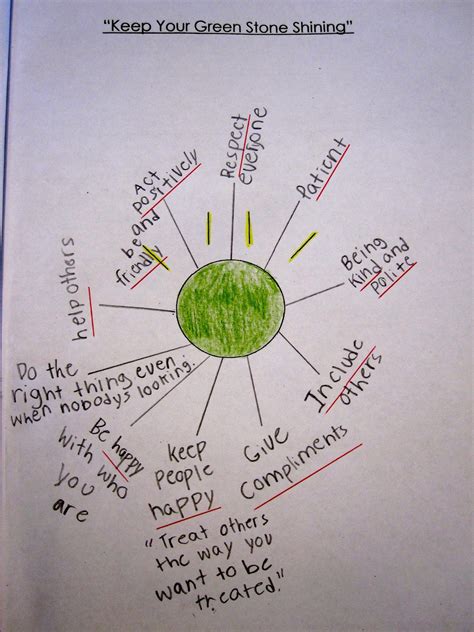 "Keep Your Green Stone Shining"
Respect
everyone
Patient
Being
Kind and
Polite
Include
others
Give
Compliments
keep
people
happy
"Treat others
the way you
want to be
treated."
Be happy
With who
you
are
Do the
right thing even
when nobodys looking.
help others
Act
positively
and
be
friendly